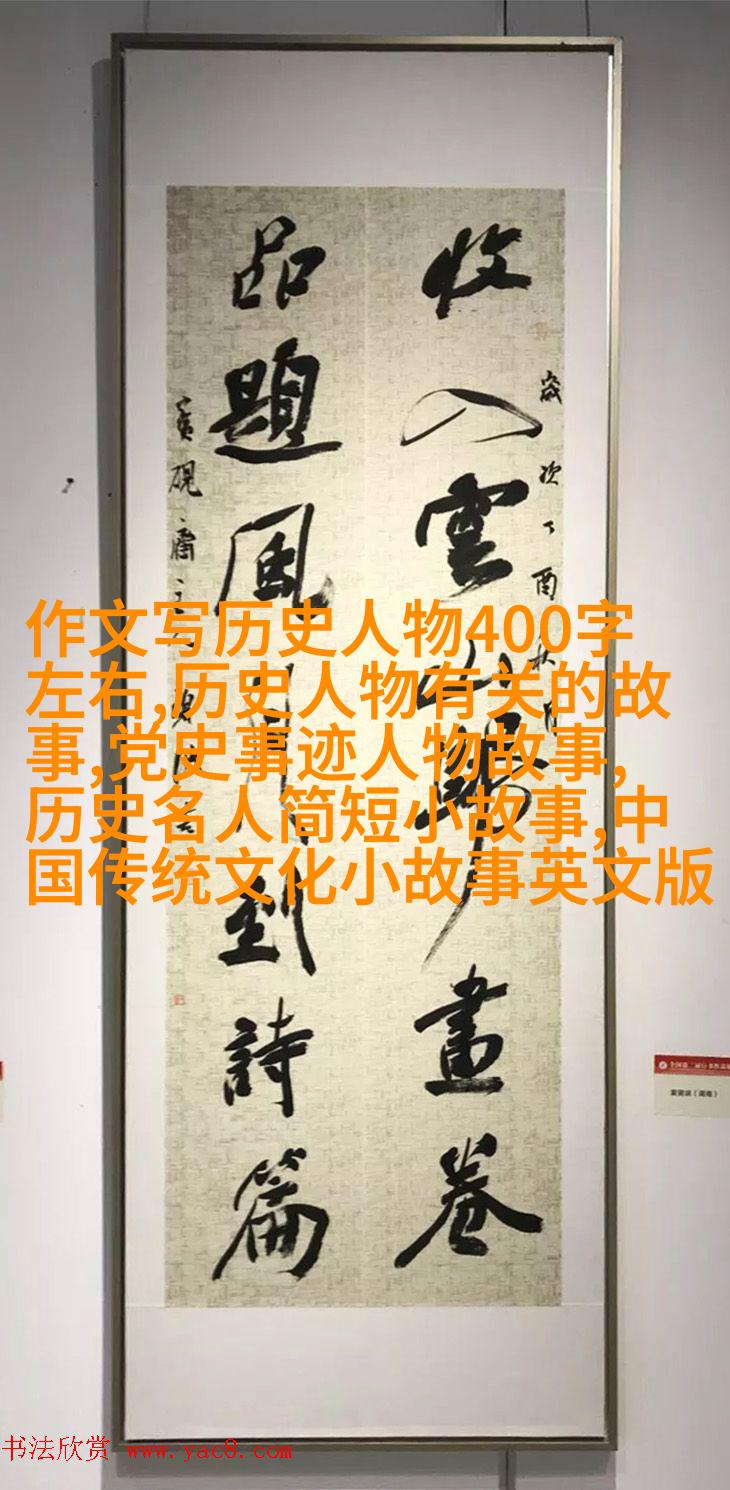 歲次丁酉秋月
收入雲山畫卷
品題風月到詩篇
硯齋主
作文写历史人物400字
左右,历史人物有关的故
事,党史事迹人物故事,
历史名人简短小故事,中
国传统文化小故事英文版
(湖南)
书法欣赏 www.yac8.com